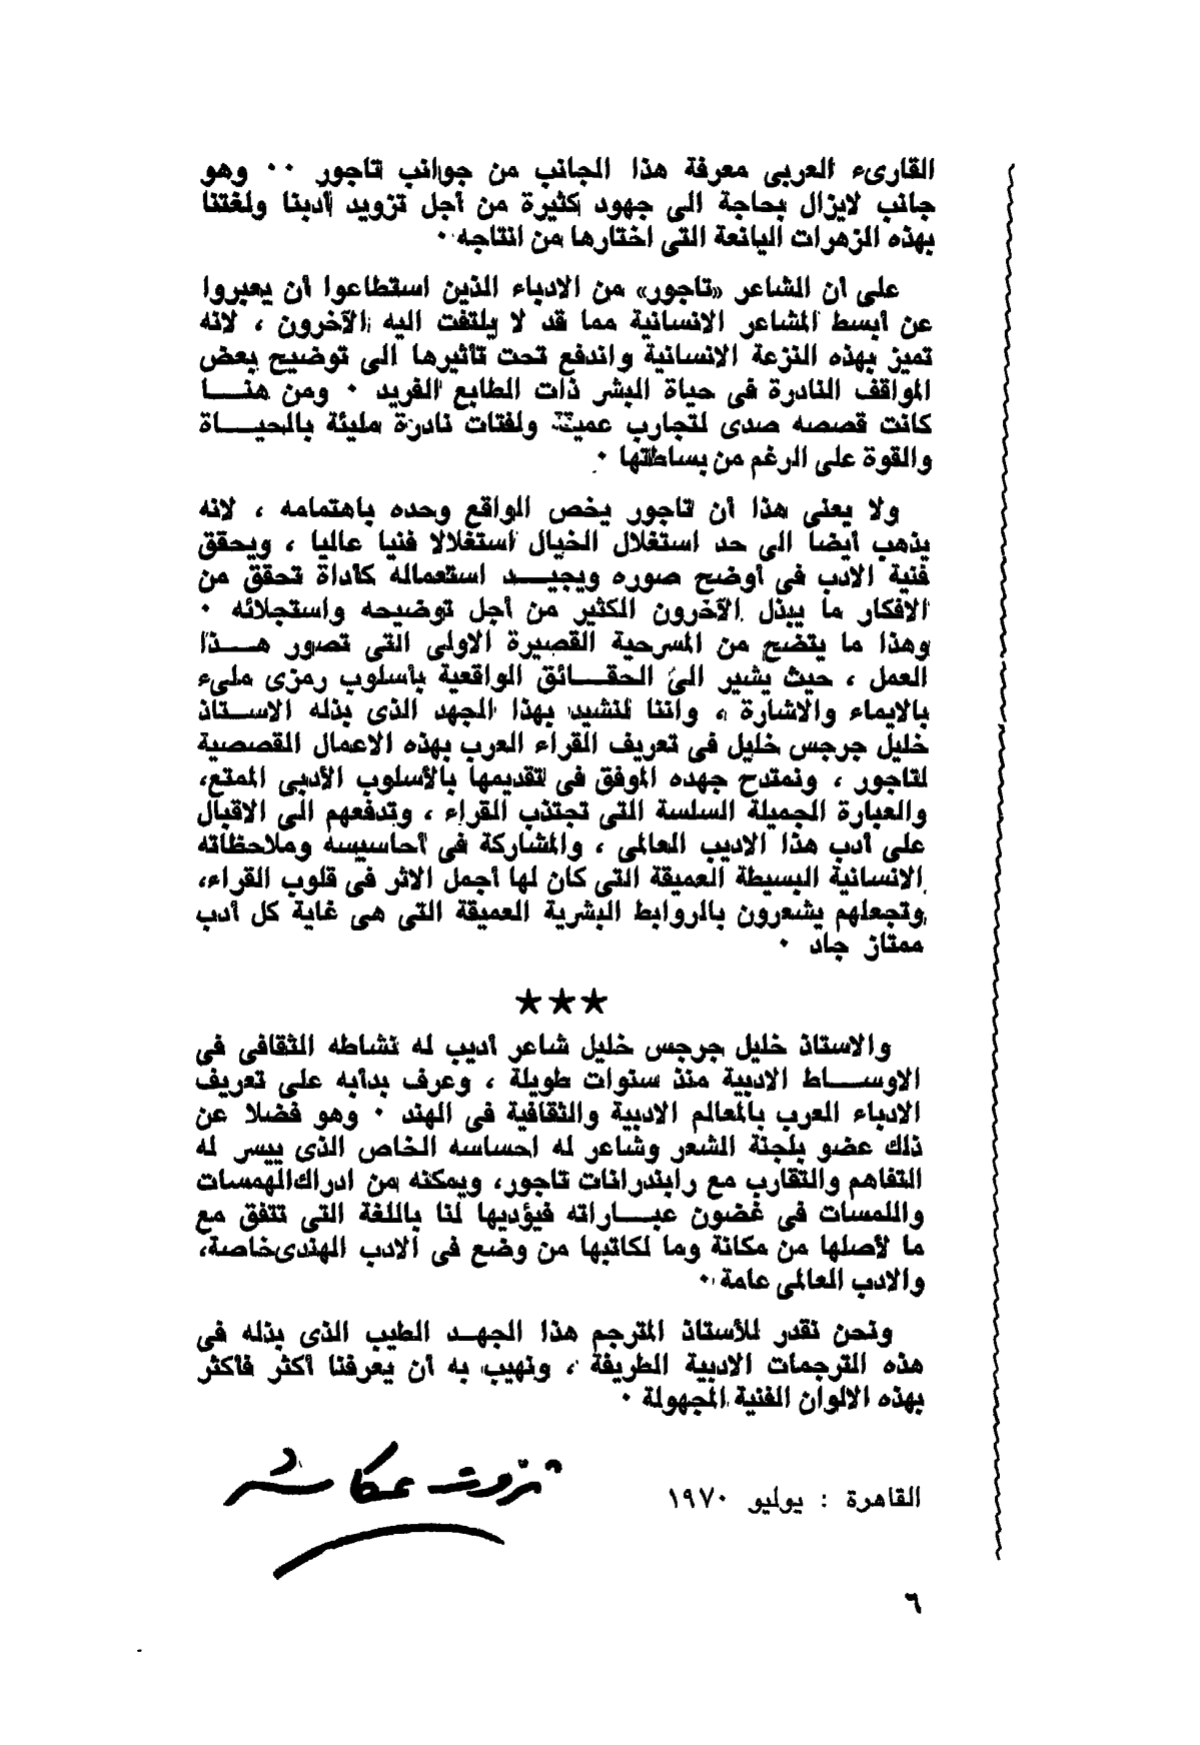 القارىء العربى معرفة هذا الجانب من جوانب تاجور ٠٠ وهو
جانب لايزال بحاجة الى جهود كثيرة من أجل تزويد أدبنا ولغتنا
بهذه الزهرات اليانعة التى اختارها من انتاجه ٠
على أن الشاعر «تاجور» من الادباء الذين استطاعوا أن يعبروا
عن أبسط المشاعر الانسانية مما قد لا يلتفت اليه الآخرون ، لانه
تميز بهذه النزعة الانسانية واندفع تحت تأثيرها الى توضيح بعض
المواقف النادرة فى حياة البشر ذات الطابع الفريد ٠ ومن هنـــا
كانت قصصه صدى لتجارب عميقة ولفتات نادرة مليئة بالحيـــاة
والقوة على الرغم من بساطتها ٠
ولا يعنى هذا أن تاجور يخص الواقع وحده باهتمامه ، لانه
يذهب أيضا الى حد استغلال الخيال استغلالا فنيا عاليا ، ويحقق
فنية الادب فى أوضح صوره ويجيـــد استعماله كأداة تحقق من
الافكار ما يبذل الآخرون الكثير من أجل توضيحه واستجلائه ٠
وهذا ما يتضح من المسرحية القصيرة الاولى التى تصور هـــذا
العمل ، حيث يشير الى الحقـــائق الواقعية بأسلوب رمزى ملىء
بالايماء والاشارة ، واننا لنشيد بهذا الجهد الذى بذله الاســـتاذ
خليل جرجس خليل فى تعريف القراء العرب بهذه الاعمال القصصية
لتاجور ، ونمتدح جهده الموفق فى تقديمها بالأسلوب الأدبى الممتع،
والعبارة الجميلة السلسة التى تجتذب القراء ، وتدفعهم الى الاقبال
على أدب هذا الاديب العالمى ، والمشاركة فى أحاسيسه وملاحظاته
الانسانية البسيطة العميقة التى كان لها أجمل الاثر فى قلوب القراء،
وتجعلهم يشعرون بالروابط البشرية العميقة التى هى غاية كل أدب
ممتاز جاد ٠
★★★
والاستاذ خليل جرجس خليل شاعر أديب له نشاطه الثقافى فى
الاوســـاط الادبية منذ سنوات طويلة ، وعرف بدأبه على تعريف
الادباء العرب بالمعالم الادبية والثقافية فى الهند ٠ وهو فضلا عن
ذلك عضو بلجنة الشعر وشاعر له احساسه الخاص الذى ييسر له
التفاهم والتقارب مع رابندرانات تاجور، ويمكنه من ادراك الهمسات
واللمسات فى غضون عبـــاراته فيؤديها لنا باللغة التى تتفق مع
ما لأصلها من مكانة وما لكاتبها من وضع فى الادب الهندى خاصة،
والادب العالمى عامة ٠
ونحن نقدر للأستاذ المترجم هذا الجهـد الطيب الذى بذله فى
هذه الترجمات الادبية الطريفة ، ونهيب به أن يعرفنا أكثر فأكثر
بهذه الالوان الفنية المجهولة ٠
ثروت عكاشه
القاهرة : يوليو ١٩٧٠
٦